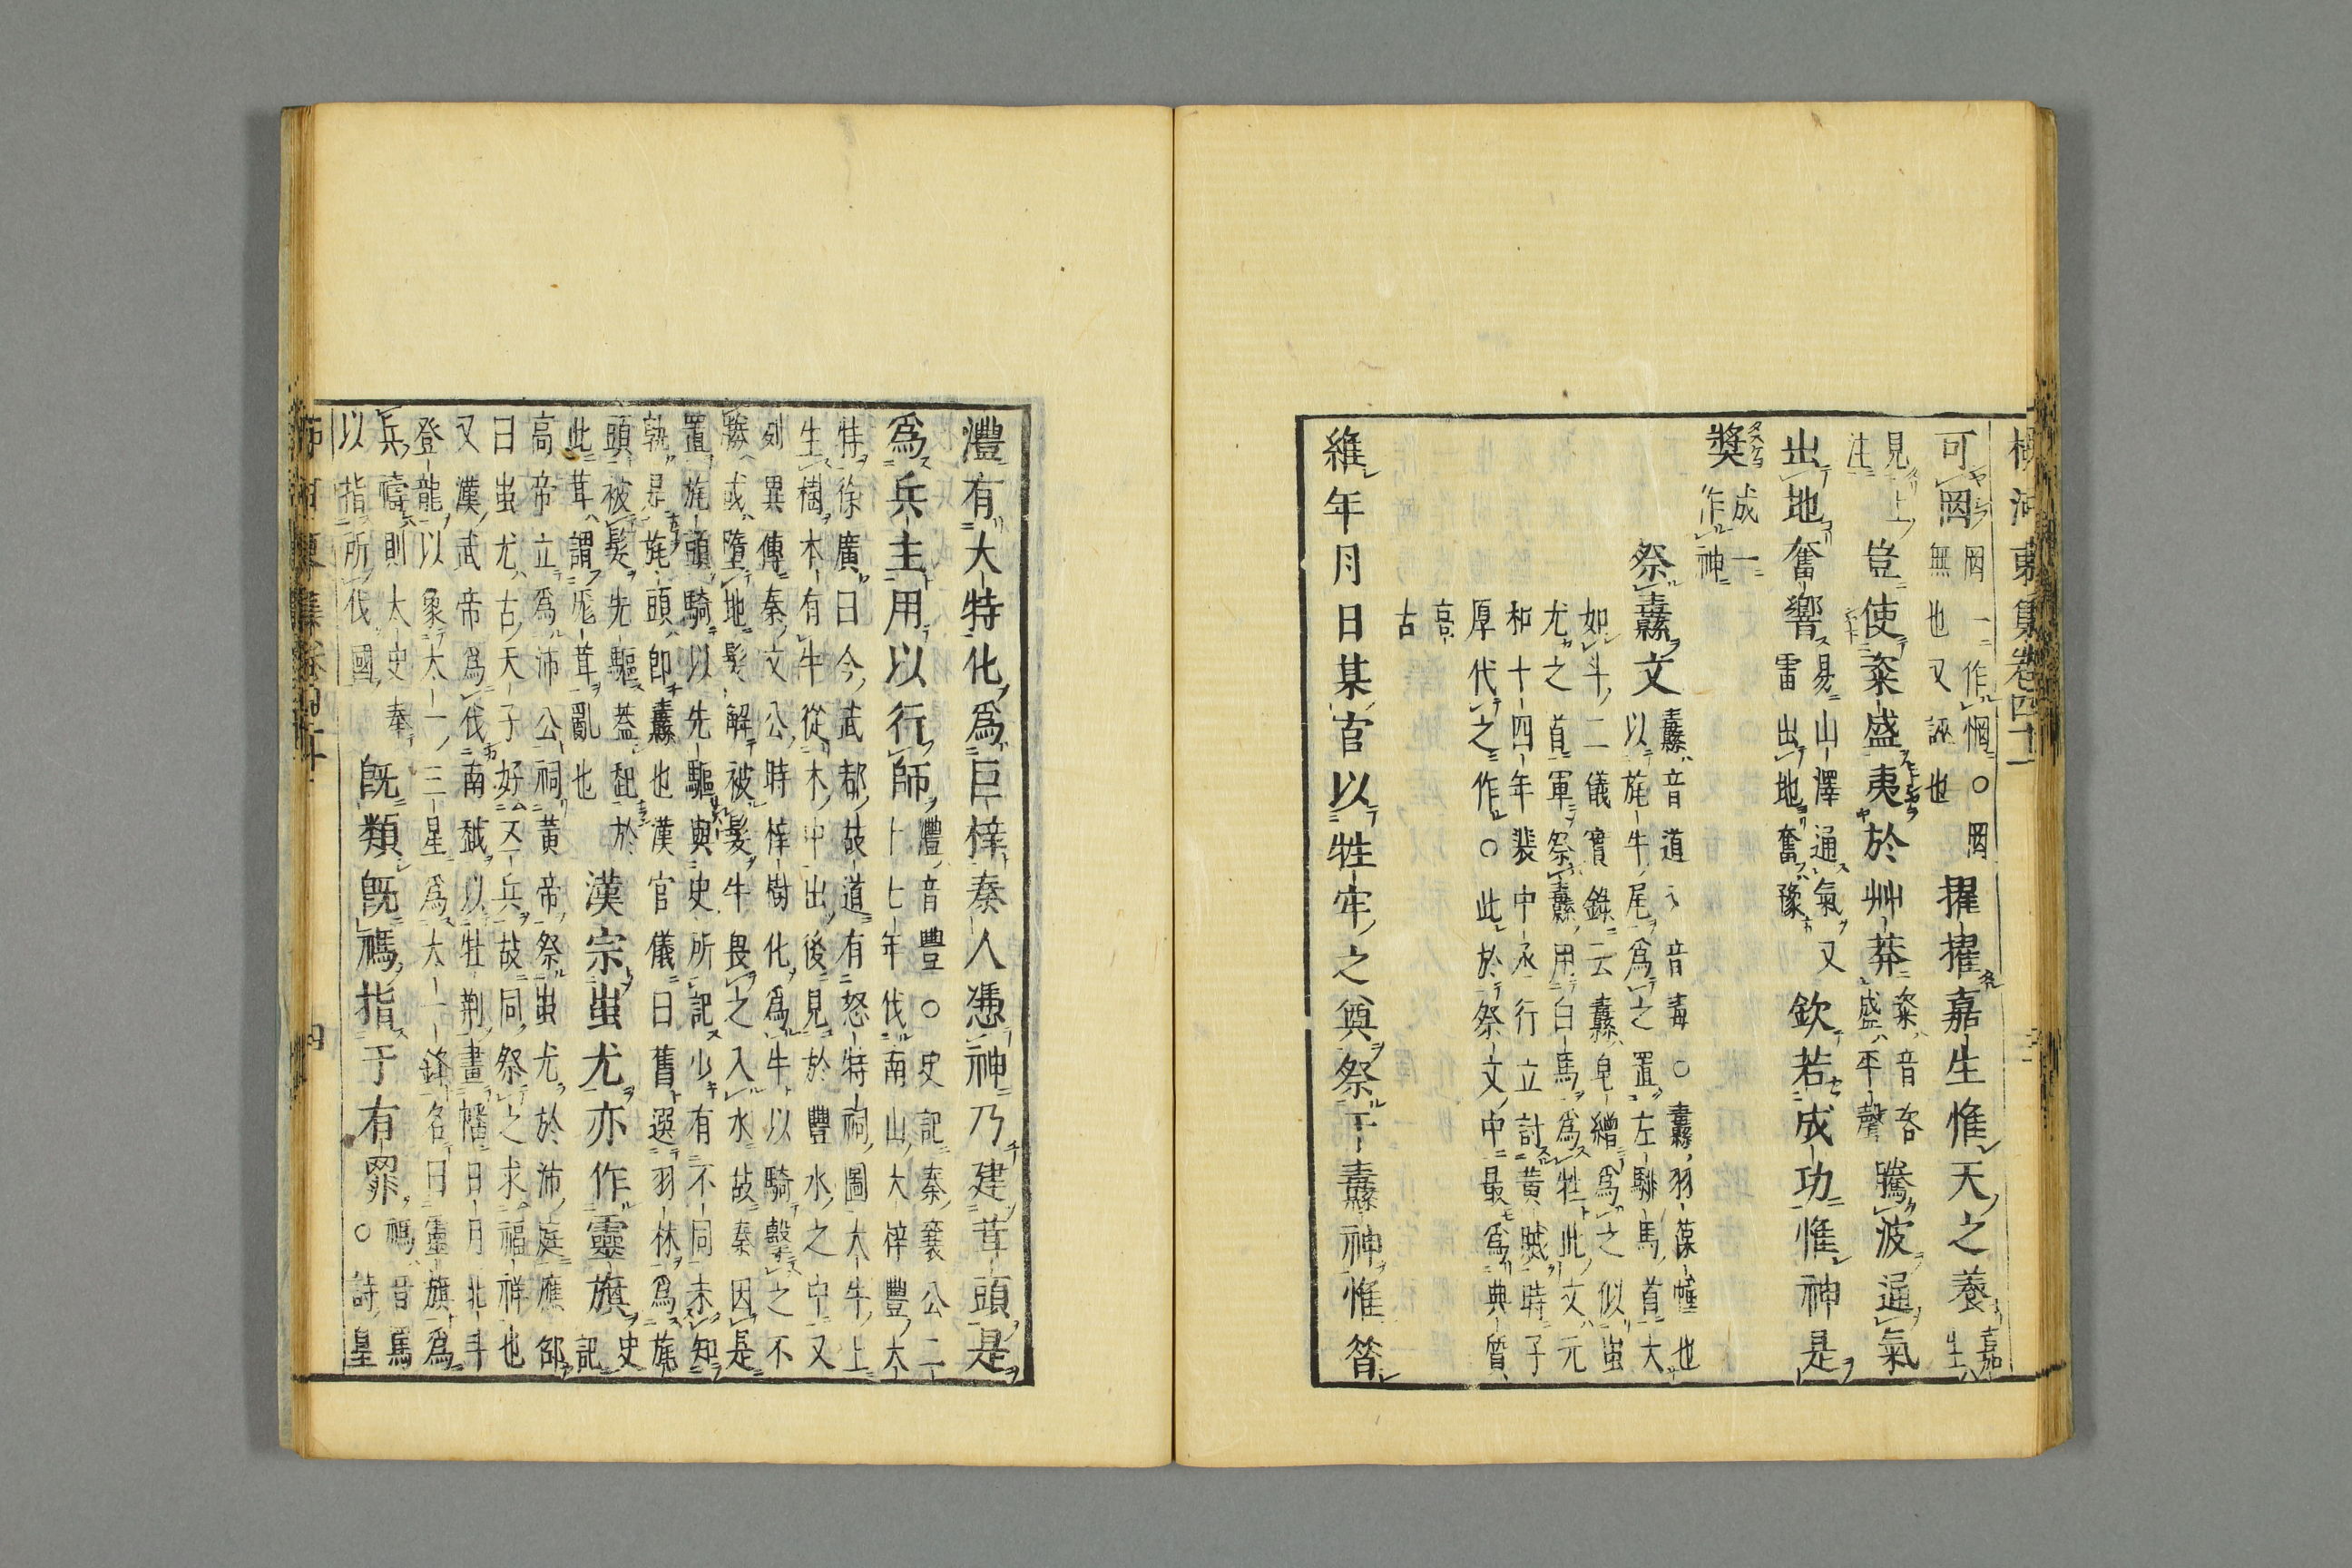 柳河東集卷四十一
可罔罔一作惘○罔無也又誣也擢擢嘉生惟天之養嘉生
見上注豈使粢盛夷於艸莽粢音咨盛平聲騰波通氣
出地奮響易山澤通氣又雷出地奮豫欽若成功惟神是
奬成一作神
祭纛文纛音道又音毒○纛羽葆幢也
以旄牛尾爲之置左騑馬首大
如斗二儀實錄云纛皁繒爲之似蚩
尤之首軍祭纛用白馬爲牲此文元
和十四年裴中丞行立討黃賊時子
厚代之作○此於祭文中最爲典質
高
古
維年月日某官以牲牢之奠祭于纛神惟昝
灃有大特化爲巨梓秦人憑神乃建茸頭是
爲兵主用以行師灃音豐○史記秦襄公二
十七年伐南山大梓豐大
特徐廣曰今武都故道有怒特祠圖大牛上
生樹木有牛從木中出後見於豐水之中又
列異傳秦文公時梓樹化爲牛以騎擊之不
勝或墮地髮解被髮牛畏之入水故秦因是
置旄頭騎以先驅與史所記少有不同未知
孰是旄頭卽纛也漢官儀曰舊選羽林爲旄
頭被髮先驅蓋起於
此茸謂尨茸亂也漢宗蚩尤亦作靈旗史記
高帝立爲沛公祠黃帝祭蚩尤於沛庭應邵
曰蚩尤古天子好五兵故同祭之求福祥也
又漢武帝爲伐南越以牡荆畫幡日月北斗
登龍以象太一三星爲太一鋒名曰靈旗爲
兵禱則太史奉
以指所伐國旣類旣禡指于有罪禡音馬○詩皇
四